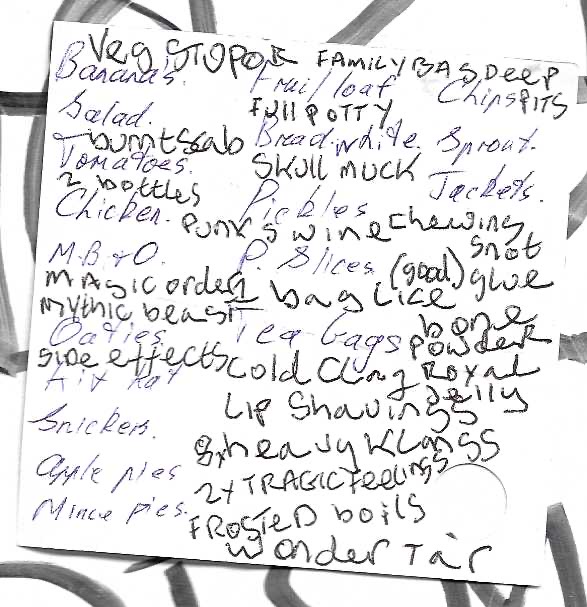 Veg STOPOR FAMILY BAG DEEP
Bananas. Fruit loaf Chips PITS
FULL POTTY
Salad. Bread. white. Sprout.
burntscab
Tomatoes. SKULL MUCK Jackets.
2 bottles
Chicken. Pickles
PUNK SWINE chewing
snot
M.B + O. P. Slices (good) glue
MAGIC order 1 bag Lice
Mythic beast bone
Oaties. Tea bags POWDER
Side effects Cold Clag ROYAL
Kit Kat Jelly
Lip Shavings
Snickers.
8 heavy Klangs
Apple pies
2x TRAGIC FEELINGS
Mince pies.
FROSTED boils
Wonder Tar